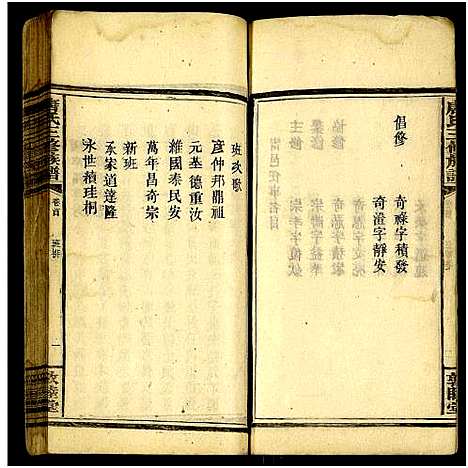 唐氏三修族譜
倡修
奇祿字積發
奇澄字靜安
班次歌
彥仲邦鼎祖
元基德重汝
維國泰民安
萬年昌奇宗
新班
承家道達隆
永世積珪桐
唐氏三修族譜
卷首
班次
一
敦睦堂